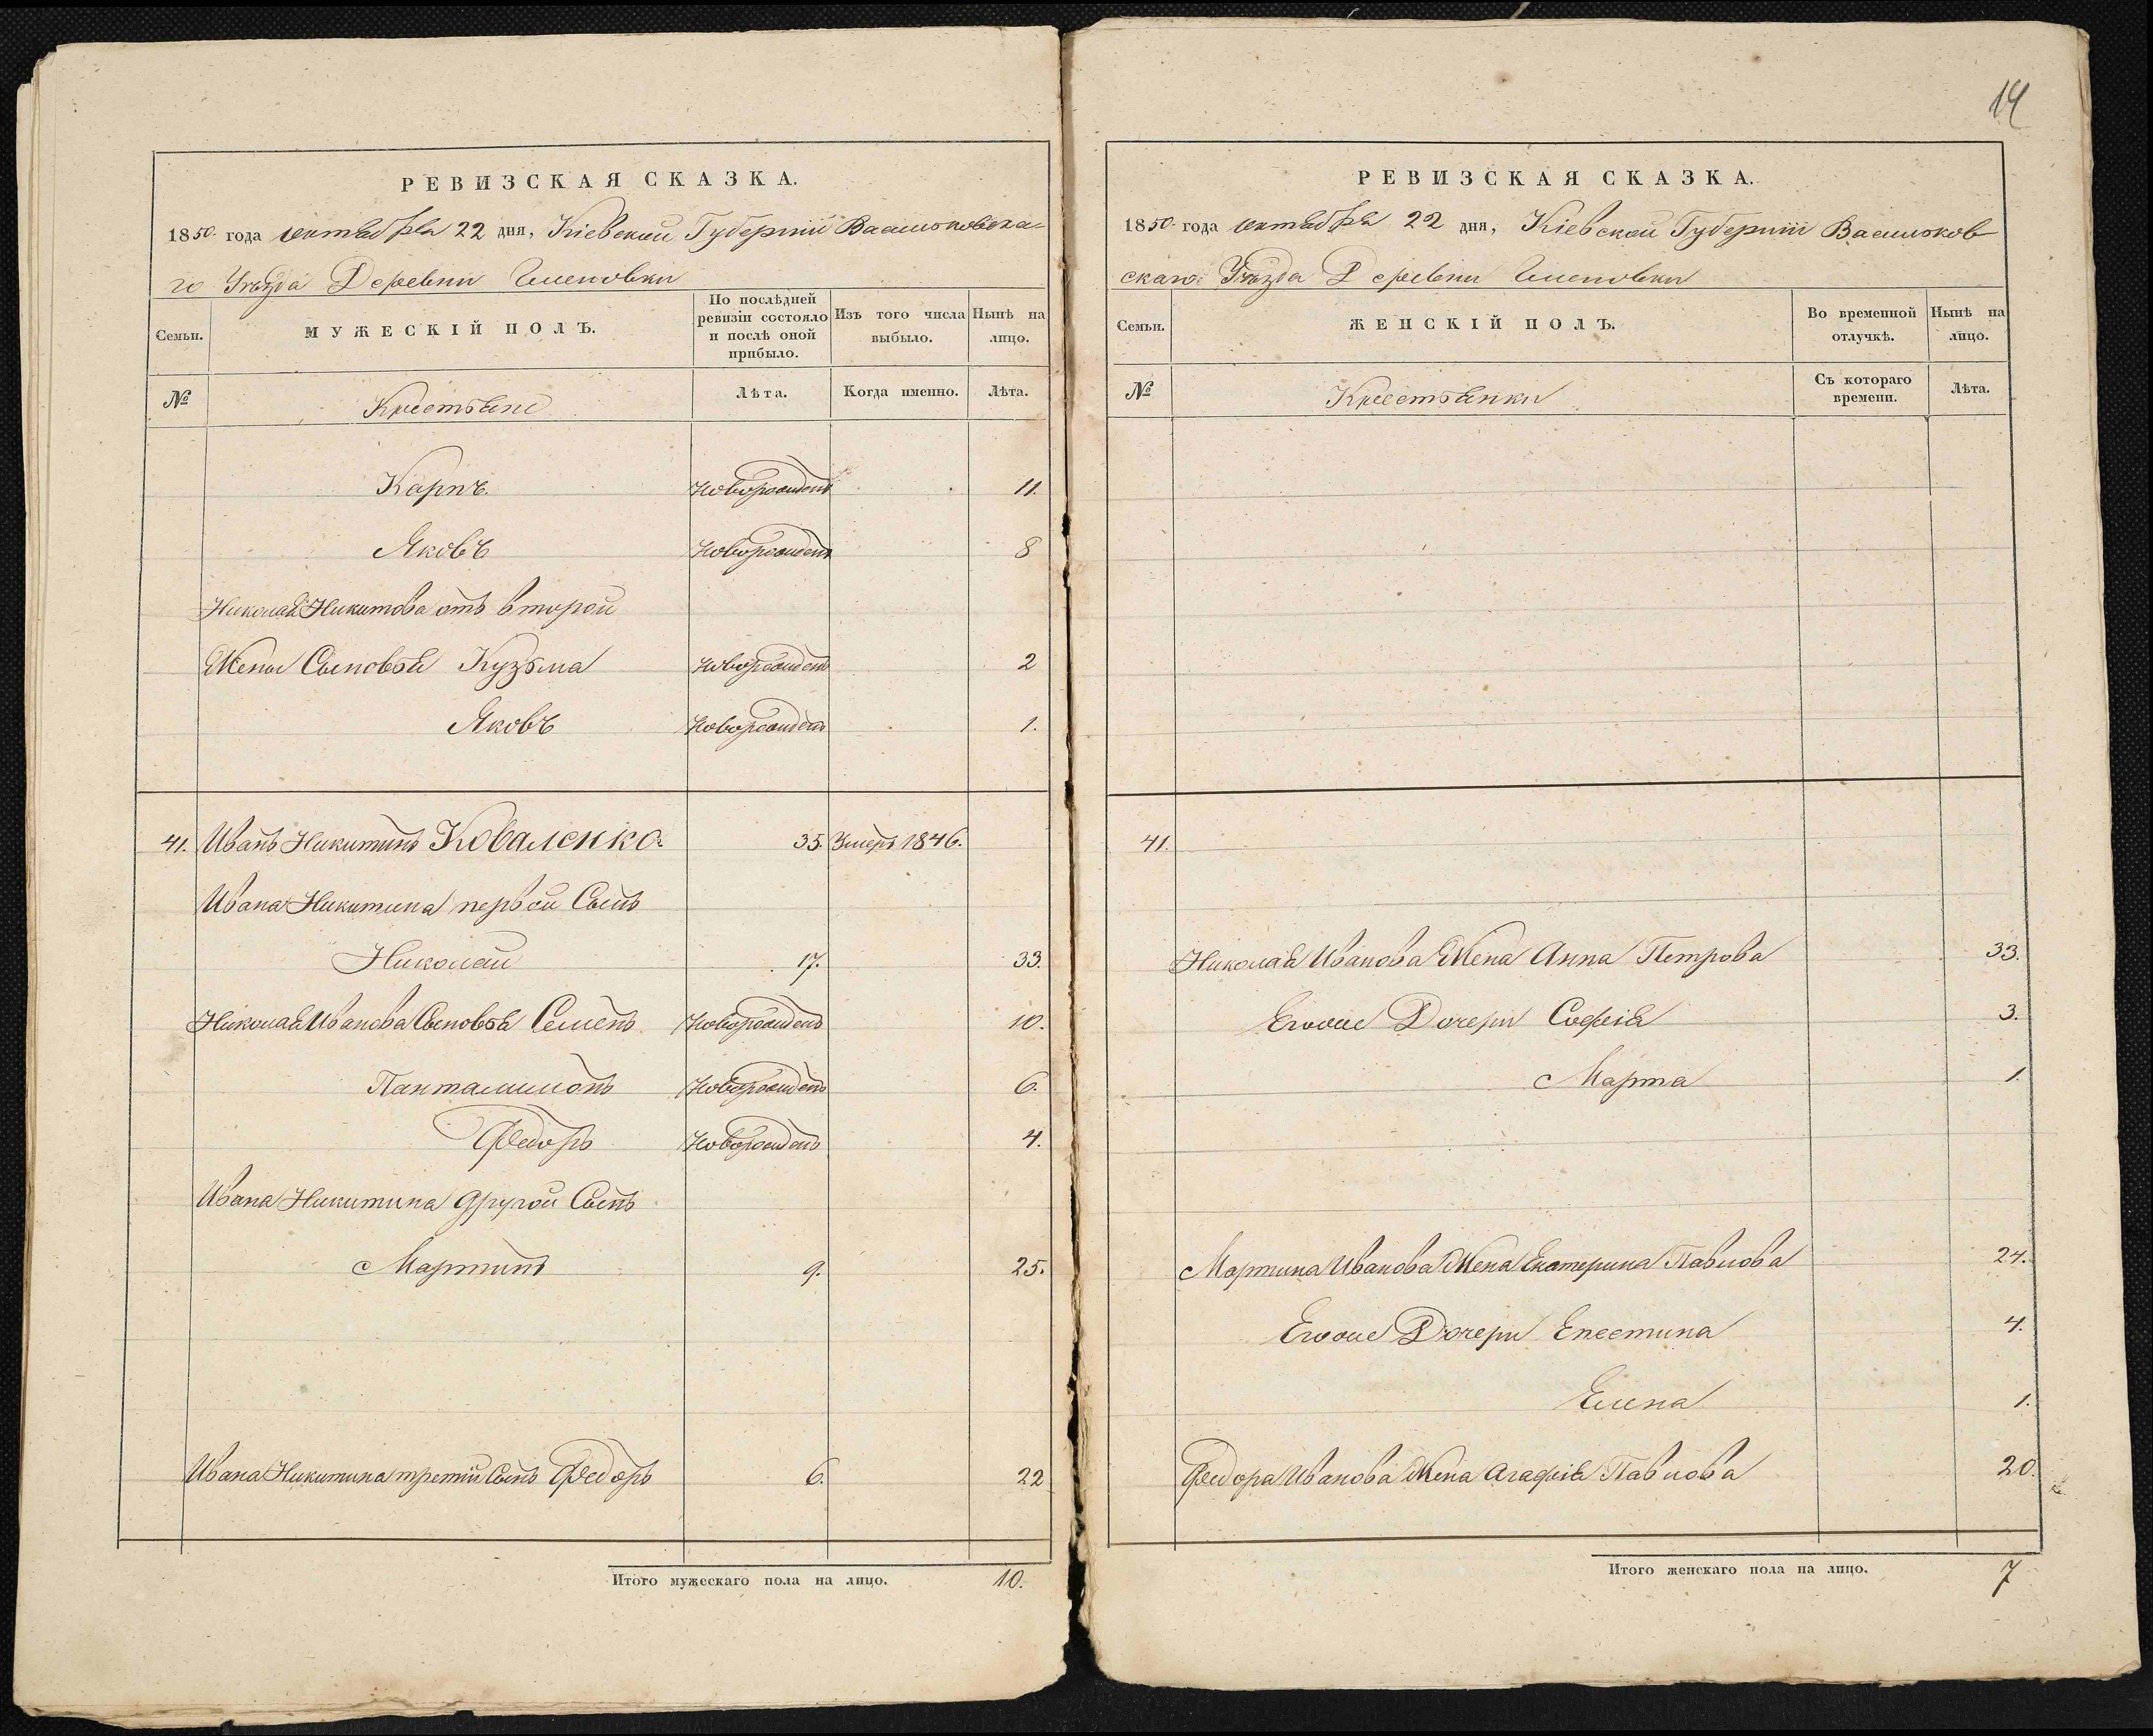 РЕВИЗСКАЯ СКАЗКА.
1850. года октября 22 дня, Кіевской Губерніи Васильковска-
го Уѣзда Деревни
Семьи.
МУЖЕСКІЙ ПОЛЪ.
По послѣдней ревизіи состояло и послѣ оной прибыло.
Изъ того числа выбыло.
Нынѣ на лицо.
№
Крестьяне
Лѣта.
Когда именно.
Лѣта.
Карпъ. Новорожденъ 11.
Яковъ Новорожденъ 8
Николая Никитова отъ второй
Жены Сыновья Кузьма Новорожденъ 2
Яковъ Новорожденъ 1.
41. Иванъ Никитинъ Коваленко. 35. Умеръ 1846.
Ивана Никитина первой Сынъ
Николай 17. 33.
Николая Иванова Сыновья Семенъ Новорожденъ 10.
Панталимонъ Новорожденъ 6.
Федоръ Новорожденъ 4.
Ивана Никитина другой Сынъ
Мартинъ 9. 25.
Ивана Никитина третій Сынъ Федоръ 6. 22
Итого мужескаго пола на лицо. 10.
14
РЕВИЗСКАЯ СКАЗКА.
1850. года октября 22 дня, Кіевской Губерніи Васильков
скаго Уѣзда Деревни
Семьи.
ЖЕНСКІЙ ПОЛЪ.
Во временной отлучкѣ.
Нынѣ на лицо.
№
Крестьянки
Съ котораго времени.
Лѣта.
41.
Николая Иванова Жена Анна Петрова 33.
Егоже Дочери Софія 3.
Марта 1.
Мартина Иванова Жена Екатерина Павлова 24.
Егоже Дочери Епестина 4.
Елена 1.
Федора Иванова Жена Агафія Павлова 20.
Итого женскаго пола на лицо. 7